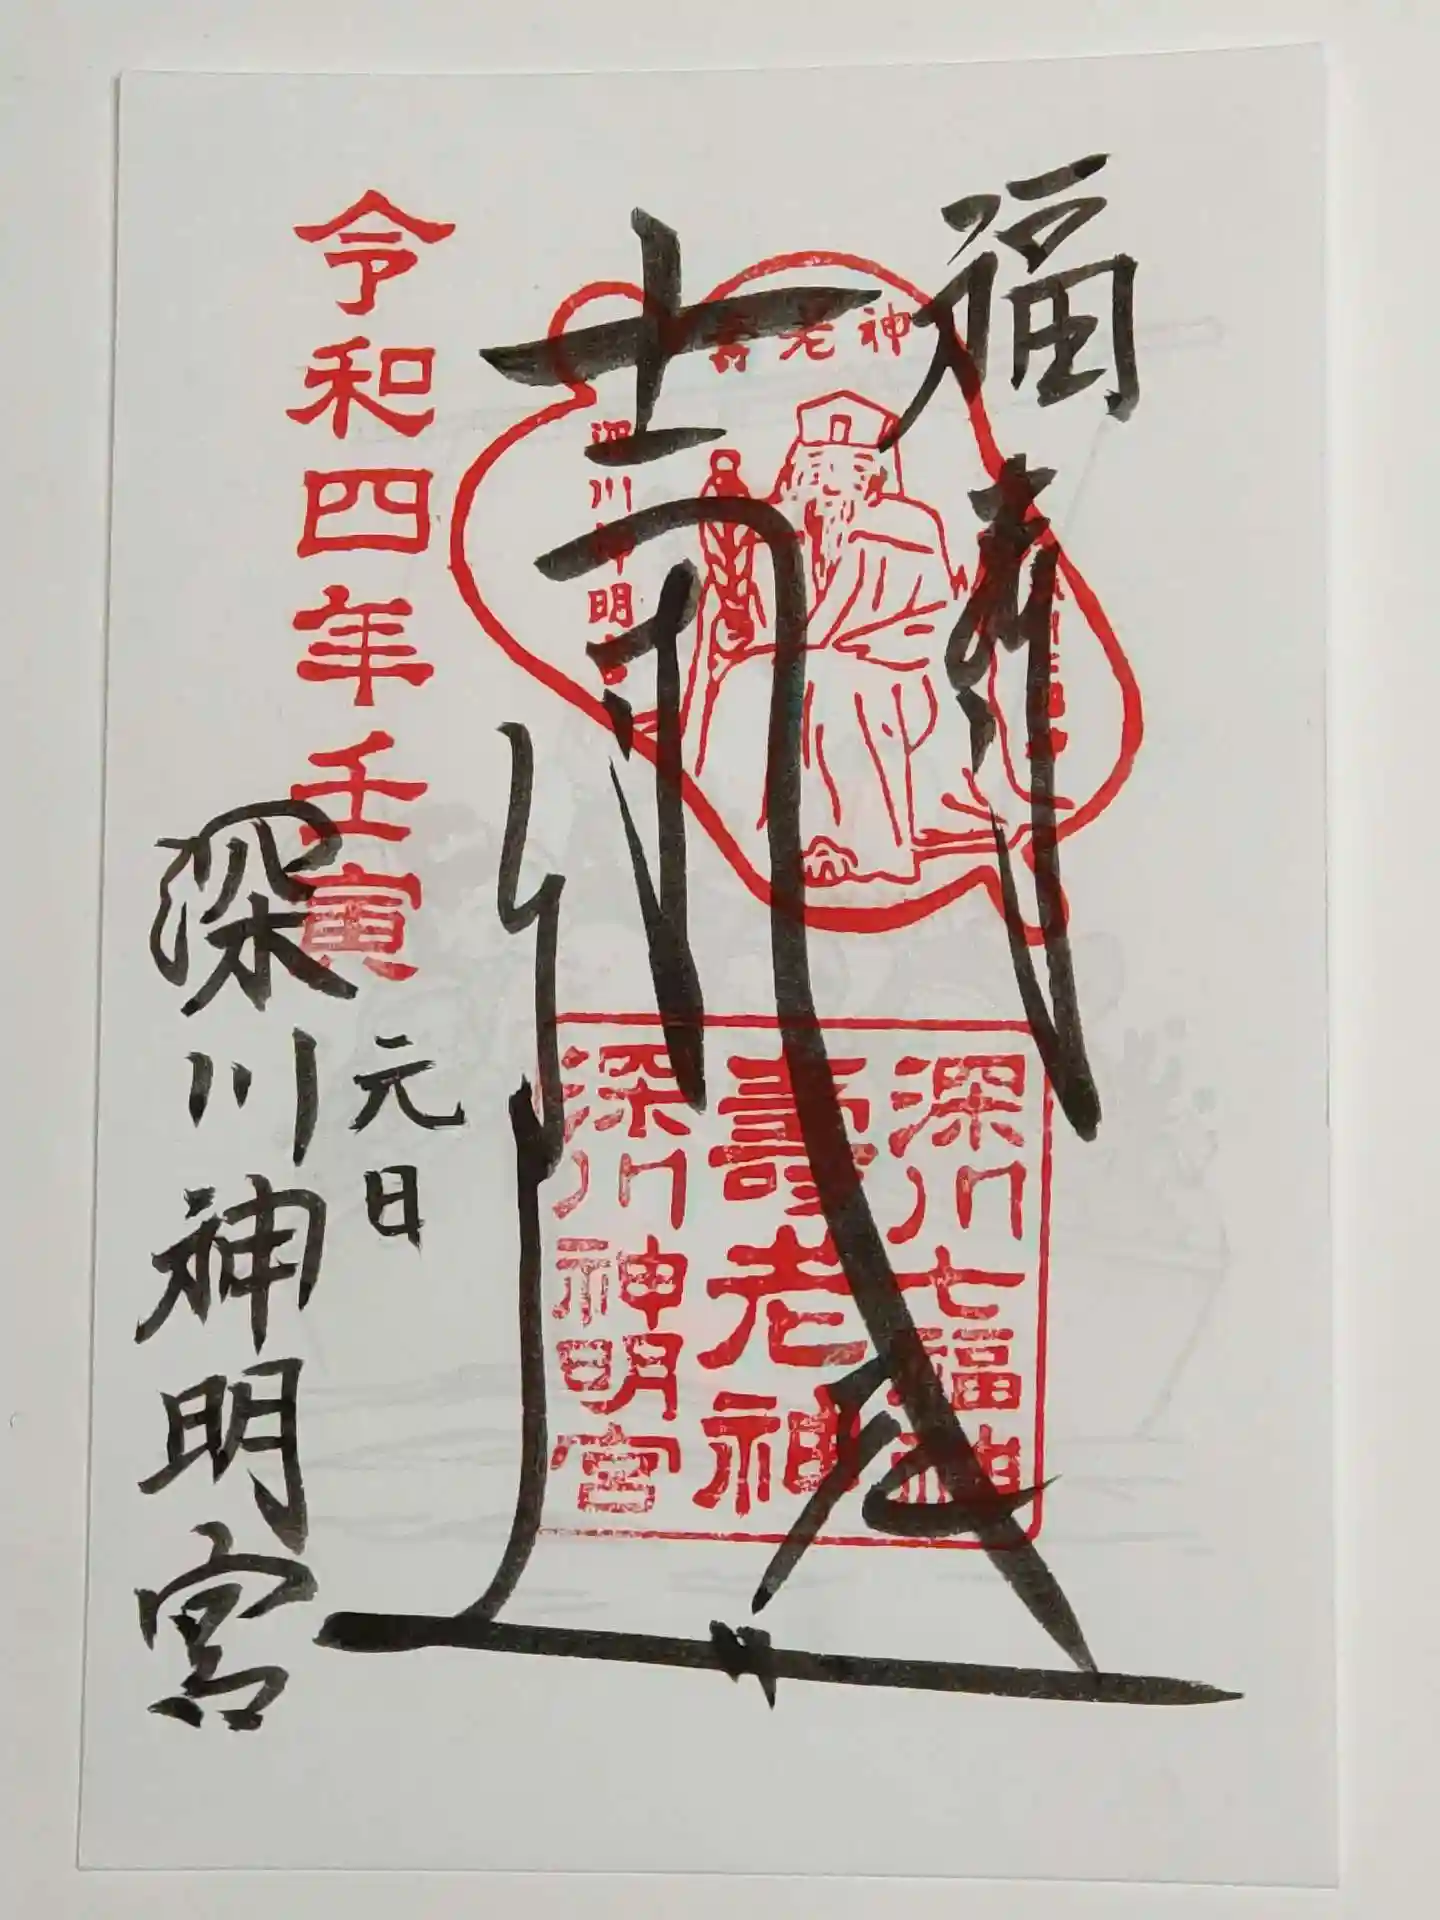 福
壽老神
深川神明宮
深川七福神
壽老神
深川神明宮
令和四年壬寅
元日
深川神明宮